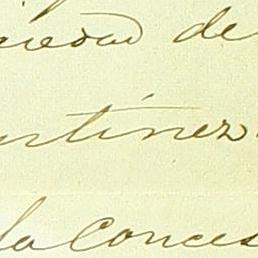 piedad de
artinez
la conces